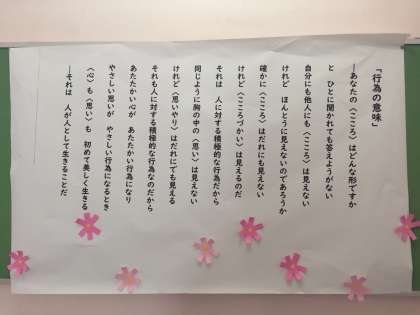 「行為の意味」
―あなたの〈こころ〉はどんな形ですか
と　ひとに聞かれても答えようがない
自分にも他人にも〈こころ〉は見えない
けれど　ほんとうに見えないのであろうか
確かに〈こころ〉はだれにも見えない
けれど〈こころづかい〉は見えるのだ
それは　人に対する積極的な行為だから
同じように胸の中の〈思い〉は見えない
けれど〈思いやり〉はだれにでも見える
それも人に対する積極的な行為なのだから
あたたかい心が　あたたかい行為になり
やさしい思いが　やさしい行為になるとき
〈心〉も〈思い〉も　初めて美しく生きる
―それは　人が人として生きることだ